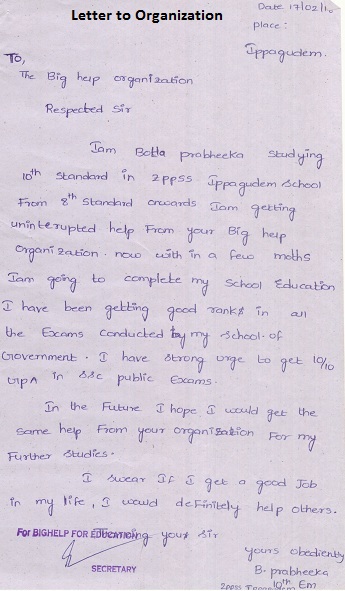 Letter to Organization
Date 17/02/1
place:
Ippagudem.
To,
The Big help organization
Respected Sir
Iam Botla prabheeka studying
10th standard in ZPPSS Ippagudem School
From 8th Standard onwards Iam getting
uninterupted help From your Big help
organization. now with in a few moths
Iam going to complete my School Education
I have been getting good ranks in all
the Exams conducted by my school. of
Government. I have strong urge to get 10/10
GPA in SSC public Exams.
In the Future I hope I would get the
same help From your organization For my
Further studies.
I swear If I get a good Job
in my life, I would definitely help others.
For BIGHELP FOR EDUCATION
Thanking your sir
SECRETARY
yours obediently
B. prabheeka
10th, Em